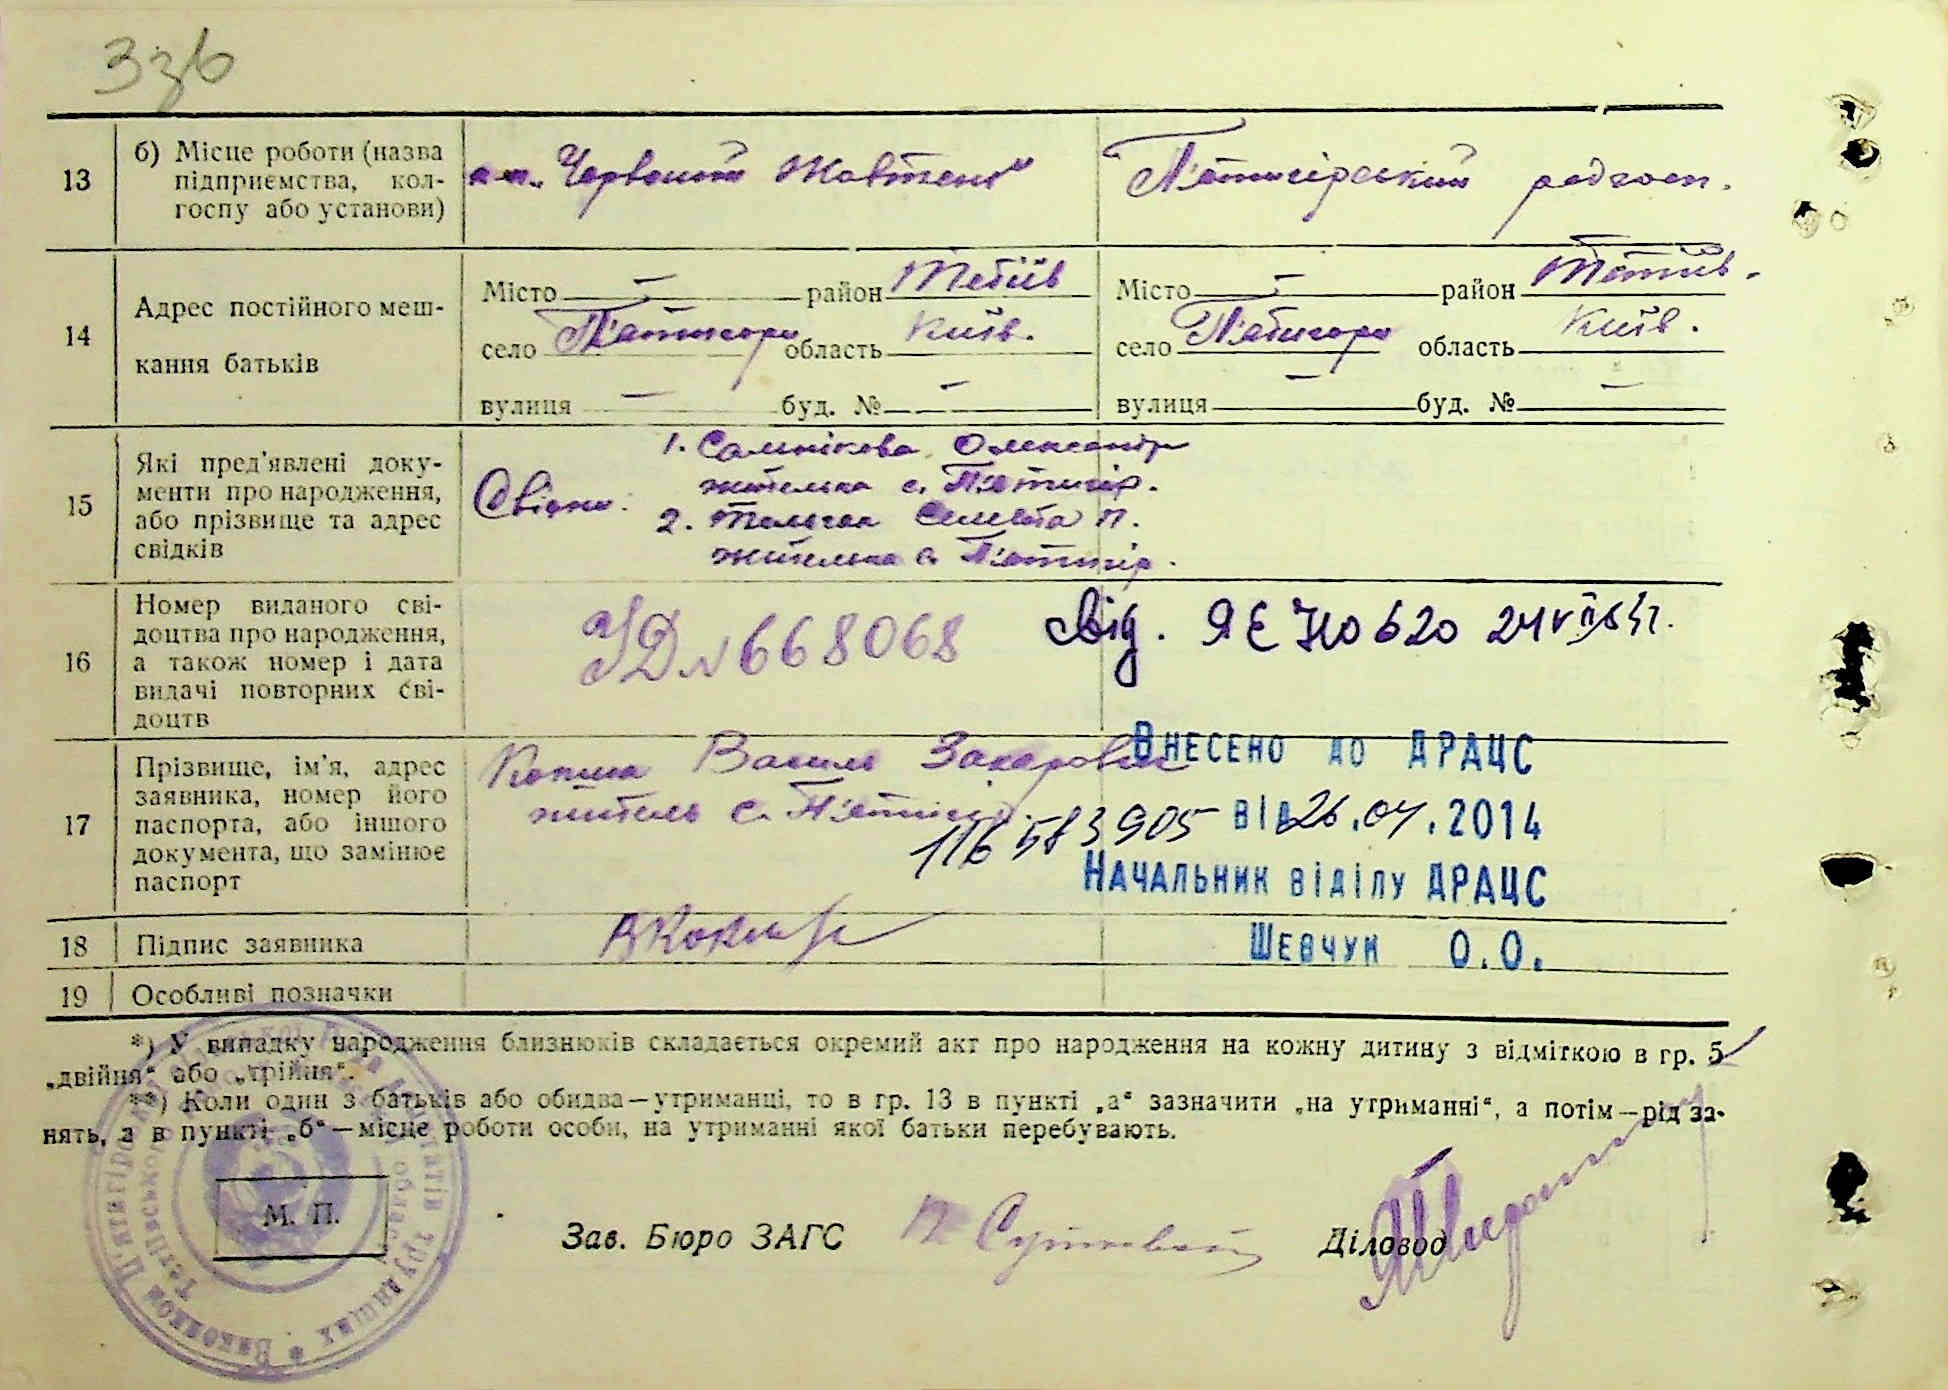 13
б) Місце роботи (назва
підприємства, кол-
госпу або установи)
„Червоний Жовтень“
П'ятигірський радгосп.
14
Адрес постійного меш-
кання батьків
Місто — район Тетіїв
село П'ятигори область Київ.
вулиця — буд. № —
Місто — район Тетіїв.
село П'ятигори область Київ.
вулиця — буд. № —
15
Які пред'явлені доку-
менти про народження,
або прізвище та адрес
свідків
Свідки:
1. Салнікова Олександр
жителька с. П'ятигір.
2. П.
жителька с. П'ятигір.
16
Номер виданого сві-
доцтва про народження,
а також номер і дата
видачі повторних сві-
доцтв
УД № 668068
17
Прізвище, ім'я, адрес
заявника, номер його
паспорта, або іншого
документа, що замінює
паспорт
Василь Захарович
житель с. П'ятигір
116583905
Внесено до ДРАЦС
від 26.04.2014
Начальник відділу ДРАЦС
Шевчук О.О.
18
Підпис заявника
19
Особливі позначки
*) У випадку народження близнюків складається окремий акт про народження на кожну дитину з відміткою в гр. 5
„двійня“ або „трійня“.
**) Коли один з батьків або обидва—утриманці, то в гр. 13 в пункті „а“ зазначити „на утриманні“, а потім—рід за-
нять, а в пункті „б“—місце роботи особи, на утриманні якої батьки перебувають.
М. П.
Зав. Бюро ЗАГС
Діловод